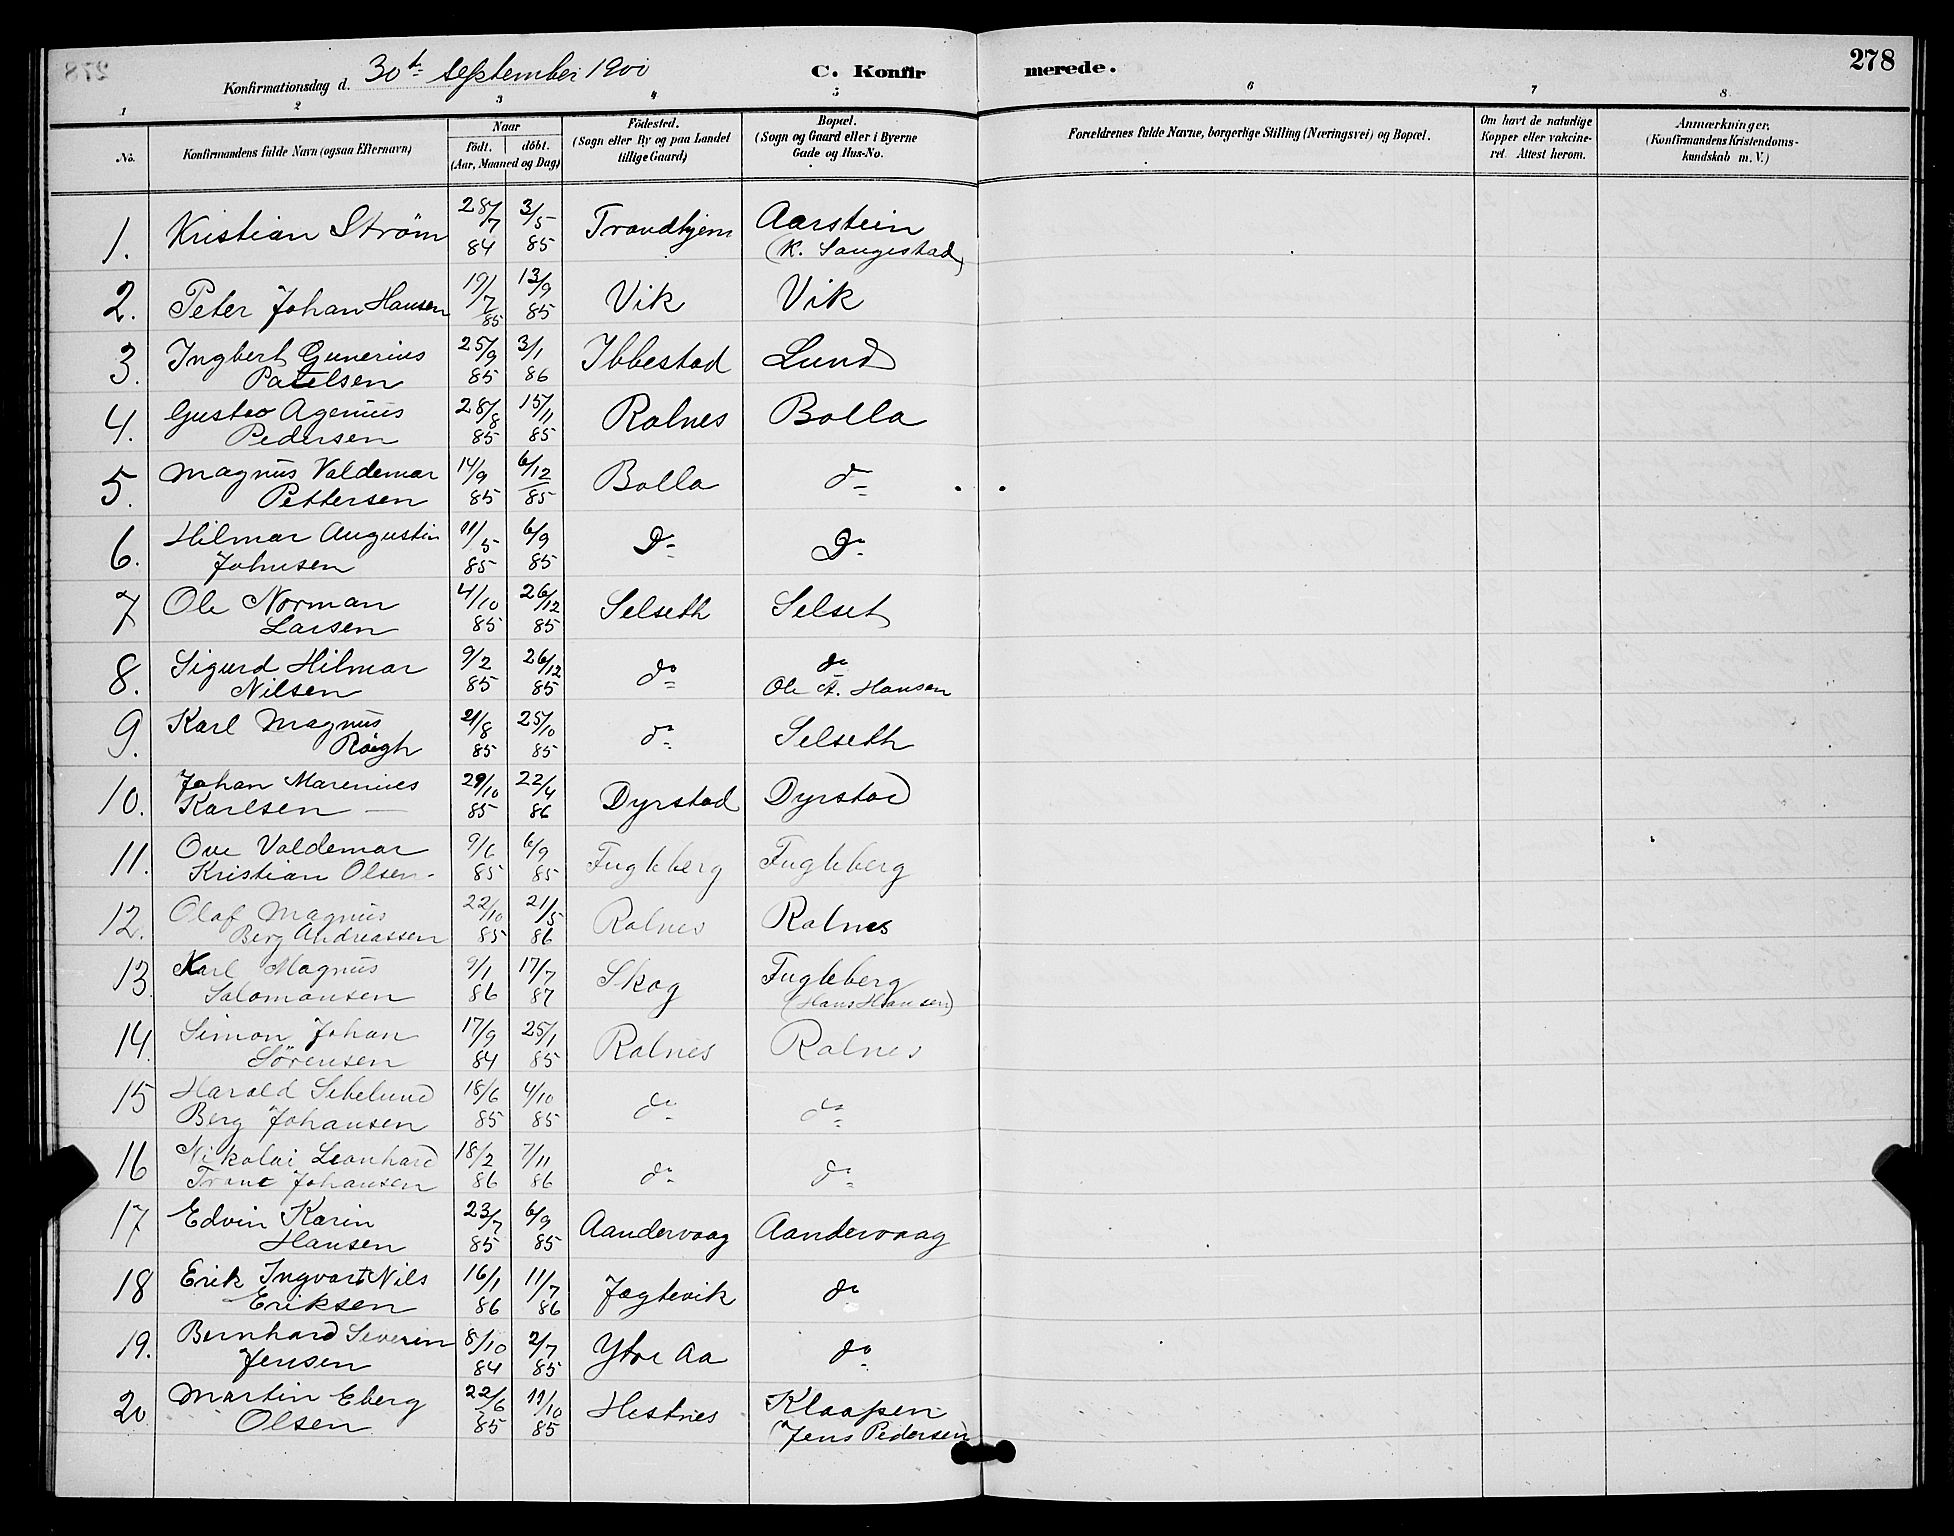 278
Konfirmationsdag d. 30te September 1900
C. Konfir merede.
1 2 3 4 5 6 7 8
No.
Konfirmandens fulde Navn (ogsaa Efternavn)
Naar
födt. döbt.
(Aar, Maaned og Dag)
Födested.
(Sogn eller By og paa Landet
tillige Gaard)
Bopæl.
(Sogn og Gaard eller i Byerne
Gade og Hus-No.
Forældrenes fulde Navne, borgerlige Stilling (Næringsvei) og Bopæl.
Om havt de naturlige
Kopper eller vakcine-
ret. Attest herom.
Anmærkninger.
(Konfirmandens Kristendoms-
kundskab m. V.)
1. Kristian Ström 28/7 84 3/5 85 Trondhjem Aarstein
(K. Sangestad)
2. Peter Johan Hansen 19/7 85 13/9 85 Vik Vik
3. Ingbert Gunerius 25/9 85 3/1 86 Ibbestad Lund
Paulsen
4. Gustav Agenius 28/8 85 15/11 85 Rolnes Bolla
Pedersen
5. Magnus Valdemar 14/9 85 6/12 85 Bolla do
Pettersen
6. Hilmar Augustin 11/5 85 6/9 85 Do Do
Johnsen
7 Ole Norman 4/10 85 26/12 85 Selseth Selset
Larsen
8. Sigurd Hilmar 9/2 85 26/12 85 do do
Nilsen Ole A. Hansen
9. Karl Magnus 21/8 85 25/10 85 do Selseth
Röigh
10. Johan Marenius 29/10 85 22/4 86 Dyrstad Dyrstad
Karlsen —
11. Ove Valdemar 9/6 85 6/9 85 Fugleberg Fugleberg
Kristian Olsen
12. Olaf Magnus 22/10 85 21/5 86 Rolnes Rolnes
Berg Andreassen
13 Karl Magnus 9/1 86 17/7 87 Skog Fugleberg
Salomonsen (Hans Hansen)
14. Simon Johan 17/9 84 25/1 85 Rolnes Rolnes
Sörensen
15 Harald Sibelund 18/6 85 4/10 85 do do
Berg Johansen
16 Nikolai Leonhard 18/2 86 7/11 86 do do
Johansen
17 Edvin Karin 23/7 85 6/9 85 Aandervaag Aandervaag
Hansen
18 Erik Ingvart Nils 16/1 86 11/7 86 Jægtevik do
Eriksen
19. Bernhard Severin 8/10 84 2/7 85 Ytre Aa do
Jensen
20 Martin Eberg 22/6 85 11/10 85 Hestnes Klaapen
Olsen (Jens Pedersen)